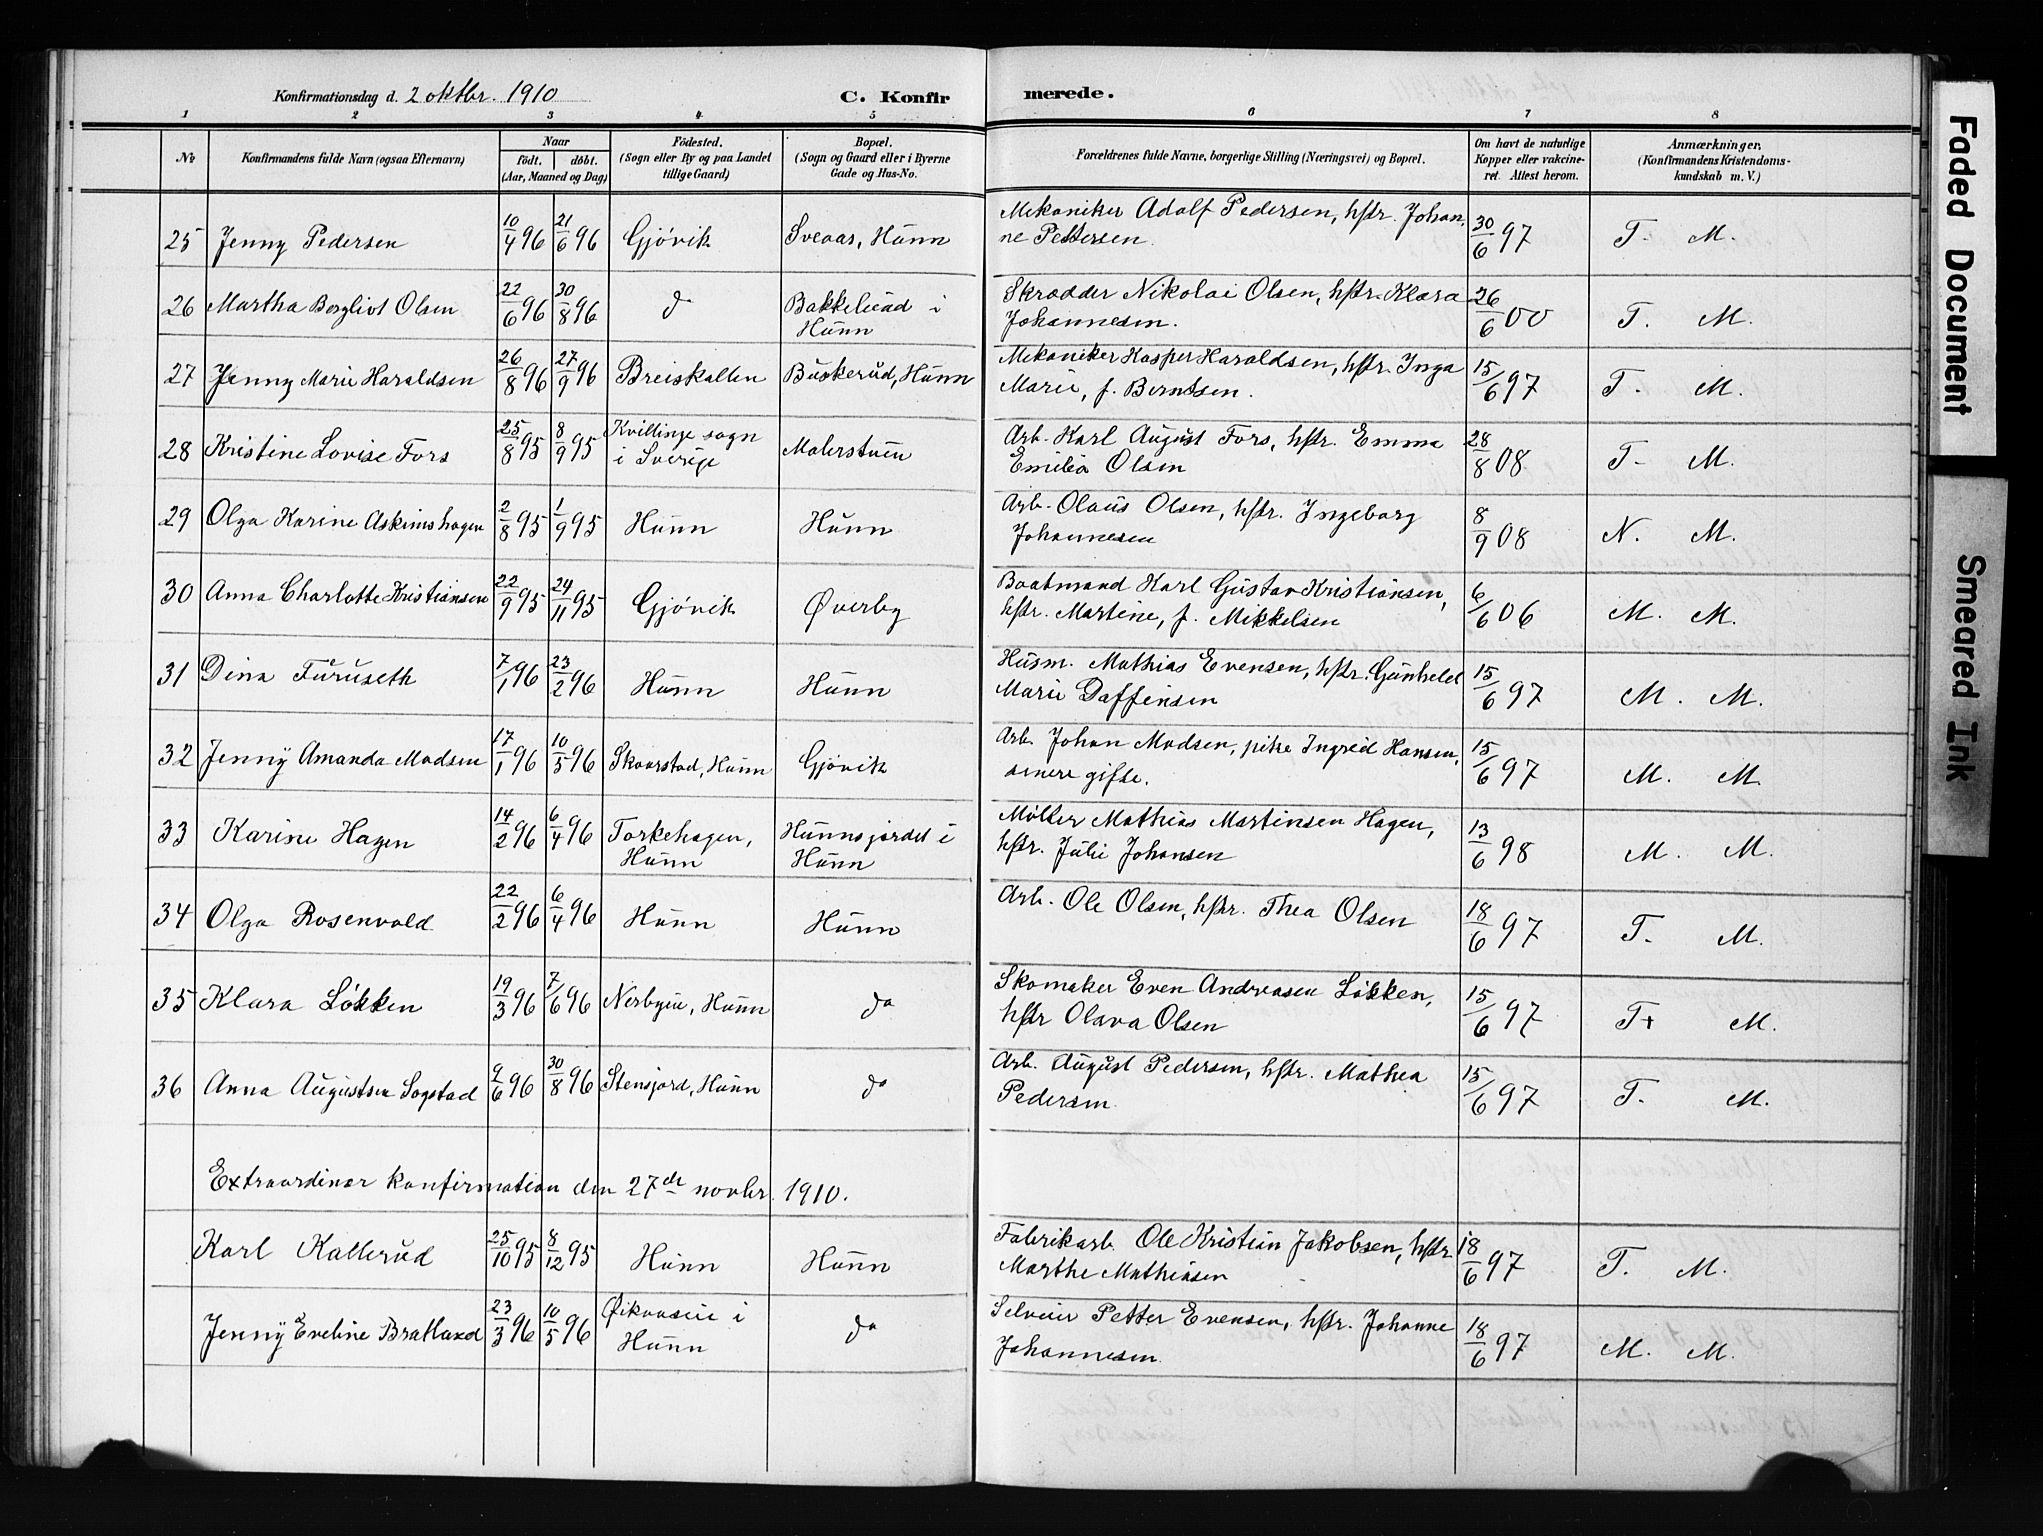 Konfirmationsdag d. 2 oktbr. 1910
C. Konfirmerede.
1 2 3 4 5 6 7 8
No
Konfirmandens fulde Navn (ogsaa Efternavn)
Naar
födt. döbt.
(Aar, Maaned og Dag)
Födested.
(Sogn eller By og paa Landet
tillige Gaard)
Bopæl.
(Sogn og Gaard eller i Byerne
Gade og Hus-No.
Forældrenes fulde Navne, borgerlige Stilling (Næringsvei) og Bopæl.
Om havt de naturlige
Kopper eller vakcine-
ret. Attest herom.
Anmærkninger.
(Konfirmandens Kristendoms-
kundskab m. V.)
25 Jenny Pedersen 10/4 96 21/6 96 Gjövik Sveaas, Hunn Mekaniker Adolf Pedersen, hstr. Johan-
ne Pettersen. 30/6 97 T. M.
26 Martha Bergliot Olsen 22/6 96 30/8 96 do Bakkelund i
Hunn Skrædder Nikolai Olsen, hstr. Klara
Johannesen. 26/6 00 T. M.
27 Jenny Marie Haraldsen 26/8 96 27/9 96 Breiskallen Buskerud, Hunn Mekaniker Kasper Haraldsen, hstr. Inga
Marie, f. Berntsen. 15/6 97 T. M.
28 Kristine Lovise Fors 25/8 95 8/9 95 Kvillinge sogn
i Sverige Malerstuen Arb. Karl August Fors, hstr. Emma
Emilia Olsen 28/8 08 T. M.
29 Olga Karine Askimshagen 2/8 95 1/9 95 Hunn Hunn Arb. Olaus Olsen, hstr. Ingeborg
Johannesen 8/9 08 N. M.
30 Anna Charlotte Kristiansen 22/9 95 24/11 95 Gjövik Øverby Baatmand Karl Gustav Kristiansen,
hstr. Martine, f. Mikkelsen 6/6 06 M. M.
31 Dina Furuseth 7/1 96 23/2 96 Hunn Hunn Husm. Mathias Evensen, hstr. Gunhild
Marie Daffinsen 15/6 97 M. M.
32 Jenny Amanda Madsen 17/1 96 10/5 96 Skaarstad, Hunn Gjövik Arb. Johan Madsen, pike Ingrid Hansen,
senere gifte. 15/6 97 M. M.
33 Karine Hagen 14/2 96 6/4 96 Torkehagen,
Hunn Hunnsjordet i
Hunn Møller Mathias Martinsen Hagen,
hstr. Julie Johansen 13/6 98 M. M.
34 Olga Rosenvold 22/2 96 6/4 96 Hunn Hunn Arb. Ole Olsen, hstr. Thea Olsen 18/6 97 T. M.
35 Klara Løkken 19/3 96 7/6 96 Nerbyen, Hunn do Skomaker Even Andreasen Løkken,
hstr Olava Olsen 15/6 97 T+ M.
36 Anna Augustsen Sogstad 9/6 96 30/8 96 Stensjord, Hunn do Arb. August Pedersen, hstr. Mathea
Pedersen 15/6 97 T. M.
Extraordinær konfirmation den 27de novbr. 1910.
Karl Kallerud 25/10 95 8/12 95 Hunn Hunn Fabrikarb. Ole Kristian Jakobsen, hstr
Marthe Mathiasen 18/6 97 T. M.
Jenny Eveline Bratland 23/3 96 10/5 96 Øikaasen i
Hunn do Selveier Petter Evensen, hstr. Johanne
Johannesen 18/6 97 M. M.
Faded Document
Smeared Ink